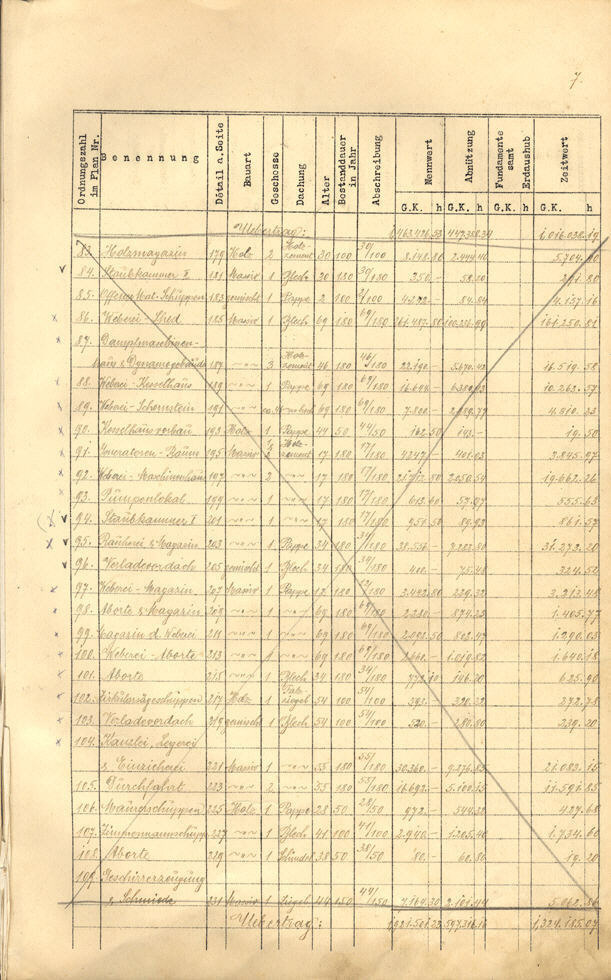 7.
Ordnungszahl im Plan Nr. Benennung Détail a. Seite Bauart Geschosse Dachung Alter Bestanddauer in Jahr Abschreibung Nennwert Abnützung Fundamente samt Erdaushub Zeitwert
G.K. h G.K. h G.K. h G.K. h
Uebertrag: 447.358.34 1,016.038.19
83. Holzmagazin 179 Holz 2 Holz-zement 30 100 30/100 8.148.80 2.444.40 5.704.40
84. Staubkammer II 181 Massiv 1 Blech 30 180 30/180 350.- 58.20 291.80
85. Offener Mat. Schuppen 183 gemischt 1 Pappe 2 100 2/100 84.84 4.157.16
86. Weberei-Shed 185 Massiv 1 Blech 69 180 69/180 161.250.81
87. Dampfmaschinen-
haus & Dynamogebäude 187 -"- 3 Holz-zement 46 180 46/180 22.190.- 5.670.42 16.519.58
88. Weberei-Kesselhaus 189 -"- 1 Pappe 69 180 69/180 10.262.57
89. Weberei-Schornstein 191 -"- 69 180 69/180 7.500.-
90. Kesselhausvorbau 193 Holz 1 Pappe 44 50 44/50 162.50 143.- 19.50
91. Generatoren-Raum 195 Massiv Holz-zement 17 180 17/180 4247.- 401.03 3.845.97
92. Weberei-Maschinenhaus 197 -"- 2 -"- 17 180 17/180 2.050.54 19.662.26
93. Pumpenlokal 199 -"- 1 -"- 17 180 17/180 613.60 57.97 555.63
94. Staubkammer I 201 -"- 1 -"- 17 180 17/180 951.50 89.93 861.57
95. Rauherei & Magazin 203 -"- 1 Pappe 34 180 34/180 31.273.20
96. Verladevordach 205 gemischt 1 Blech 34 180 34/180 400.- 75.48 324.52
97. Weberei-Magazin 207 Massiv 1 Pappe 12 180 12/180 3.442.80 229.32 3.213.48
98. Aborte & Magazin 209 -"- 1 -"- 69 180 69/180 2.280.- 874.23 1.405.77
99. Magazin d. Weberei 211 -"- 1 -"- 69 180 69/180 2.092.50 802.47 1.290.03
100. Weberei-Aborte 213 -"- 1 -"- 69 180 69/180 1.019.82 1.640.18
101. Aborte 215 -"- 1 Blech 34 180 34/180 772.10 146.20 625.90
102. Zirkularsägeschuppen 217 Holz 1 54 100 54/100 593.- 320.22 272.78
103. Verladevordach 219 gemischt 1 Blech 54 100 54/100 520.- 280.80 239.20
104. Kanzlei, Legerei
& Einzieherei 221 Massiv 1 -"- 55 180 55/180 30.360.- 9.276.85 21.083.15
105. Durchfahrt 223 -"- 2 -"- 55 180 55/180 16.692.- 5.100.15 11.591.85
106. 225 Holz 1 Pappe 28 50 28/50 972.- 544.32 427.68
107. Zimmermannschuppen 227 -"- 1 Blech 41 100 41/100 2.940.- 1205.40 1.734.60
108. Aborte 229 -"- 1 Schindel 38 50 38/50 80.- 60.80 19.20
109. Geschirrerzeugung
& Schmiede 231 Massiv 1 Ziegel 44 150 44/150 7.164.30 2.101.44 5.062.86
Uebertrag: 1,324.185.07